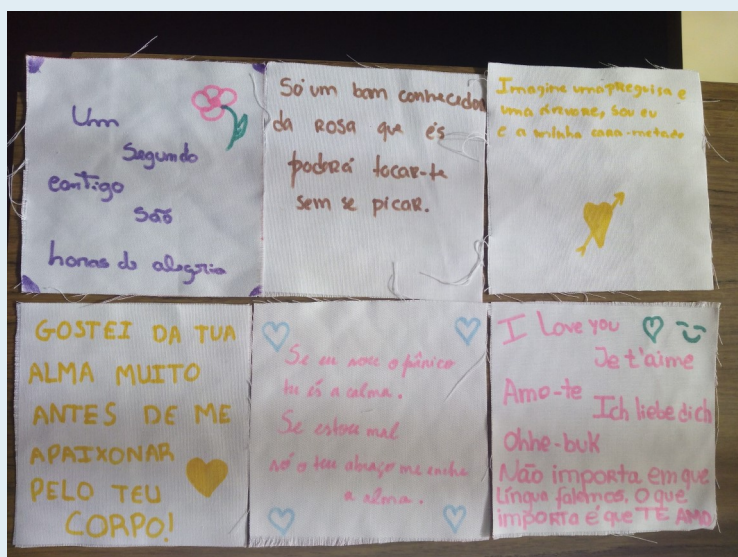 Um
segundo
contigo
são
horas de alegria
Só um bom conhecedor
da rosa que és
poderá tocar-te
sem se picar.
Imagine uma preguiça e
uma árvore, sou eu
e a minha cara-metade
GOSTEI DA TUA
ALMA MUITO
ANTES DE ME
APAIXONAR
PELO TEU
CORPO!
Se eu sou o pânico
tu és a calma.
Se estou mal
só o teu abraço me enche
a alma.
I love you
Je t'aime
Amo-te
Ich liebe dich
Ohhe-buk
Não importa em que
língua falemos, o que
importa é que TE AMO